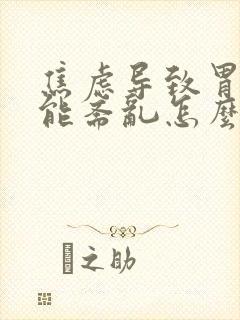 焦虑导致胃
能紊乱怎麽
之助